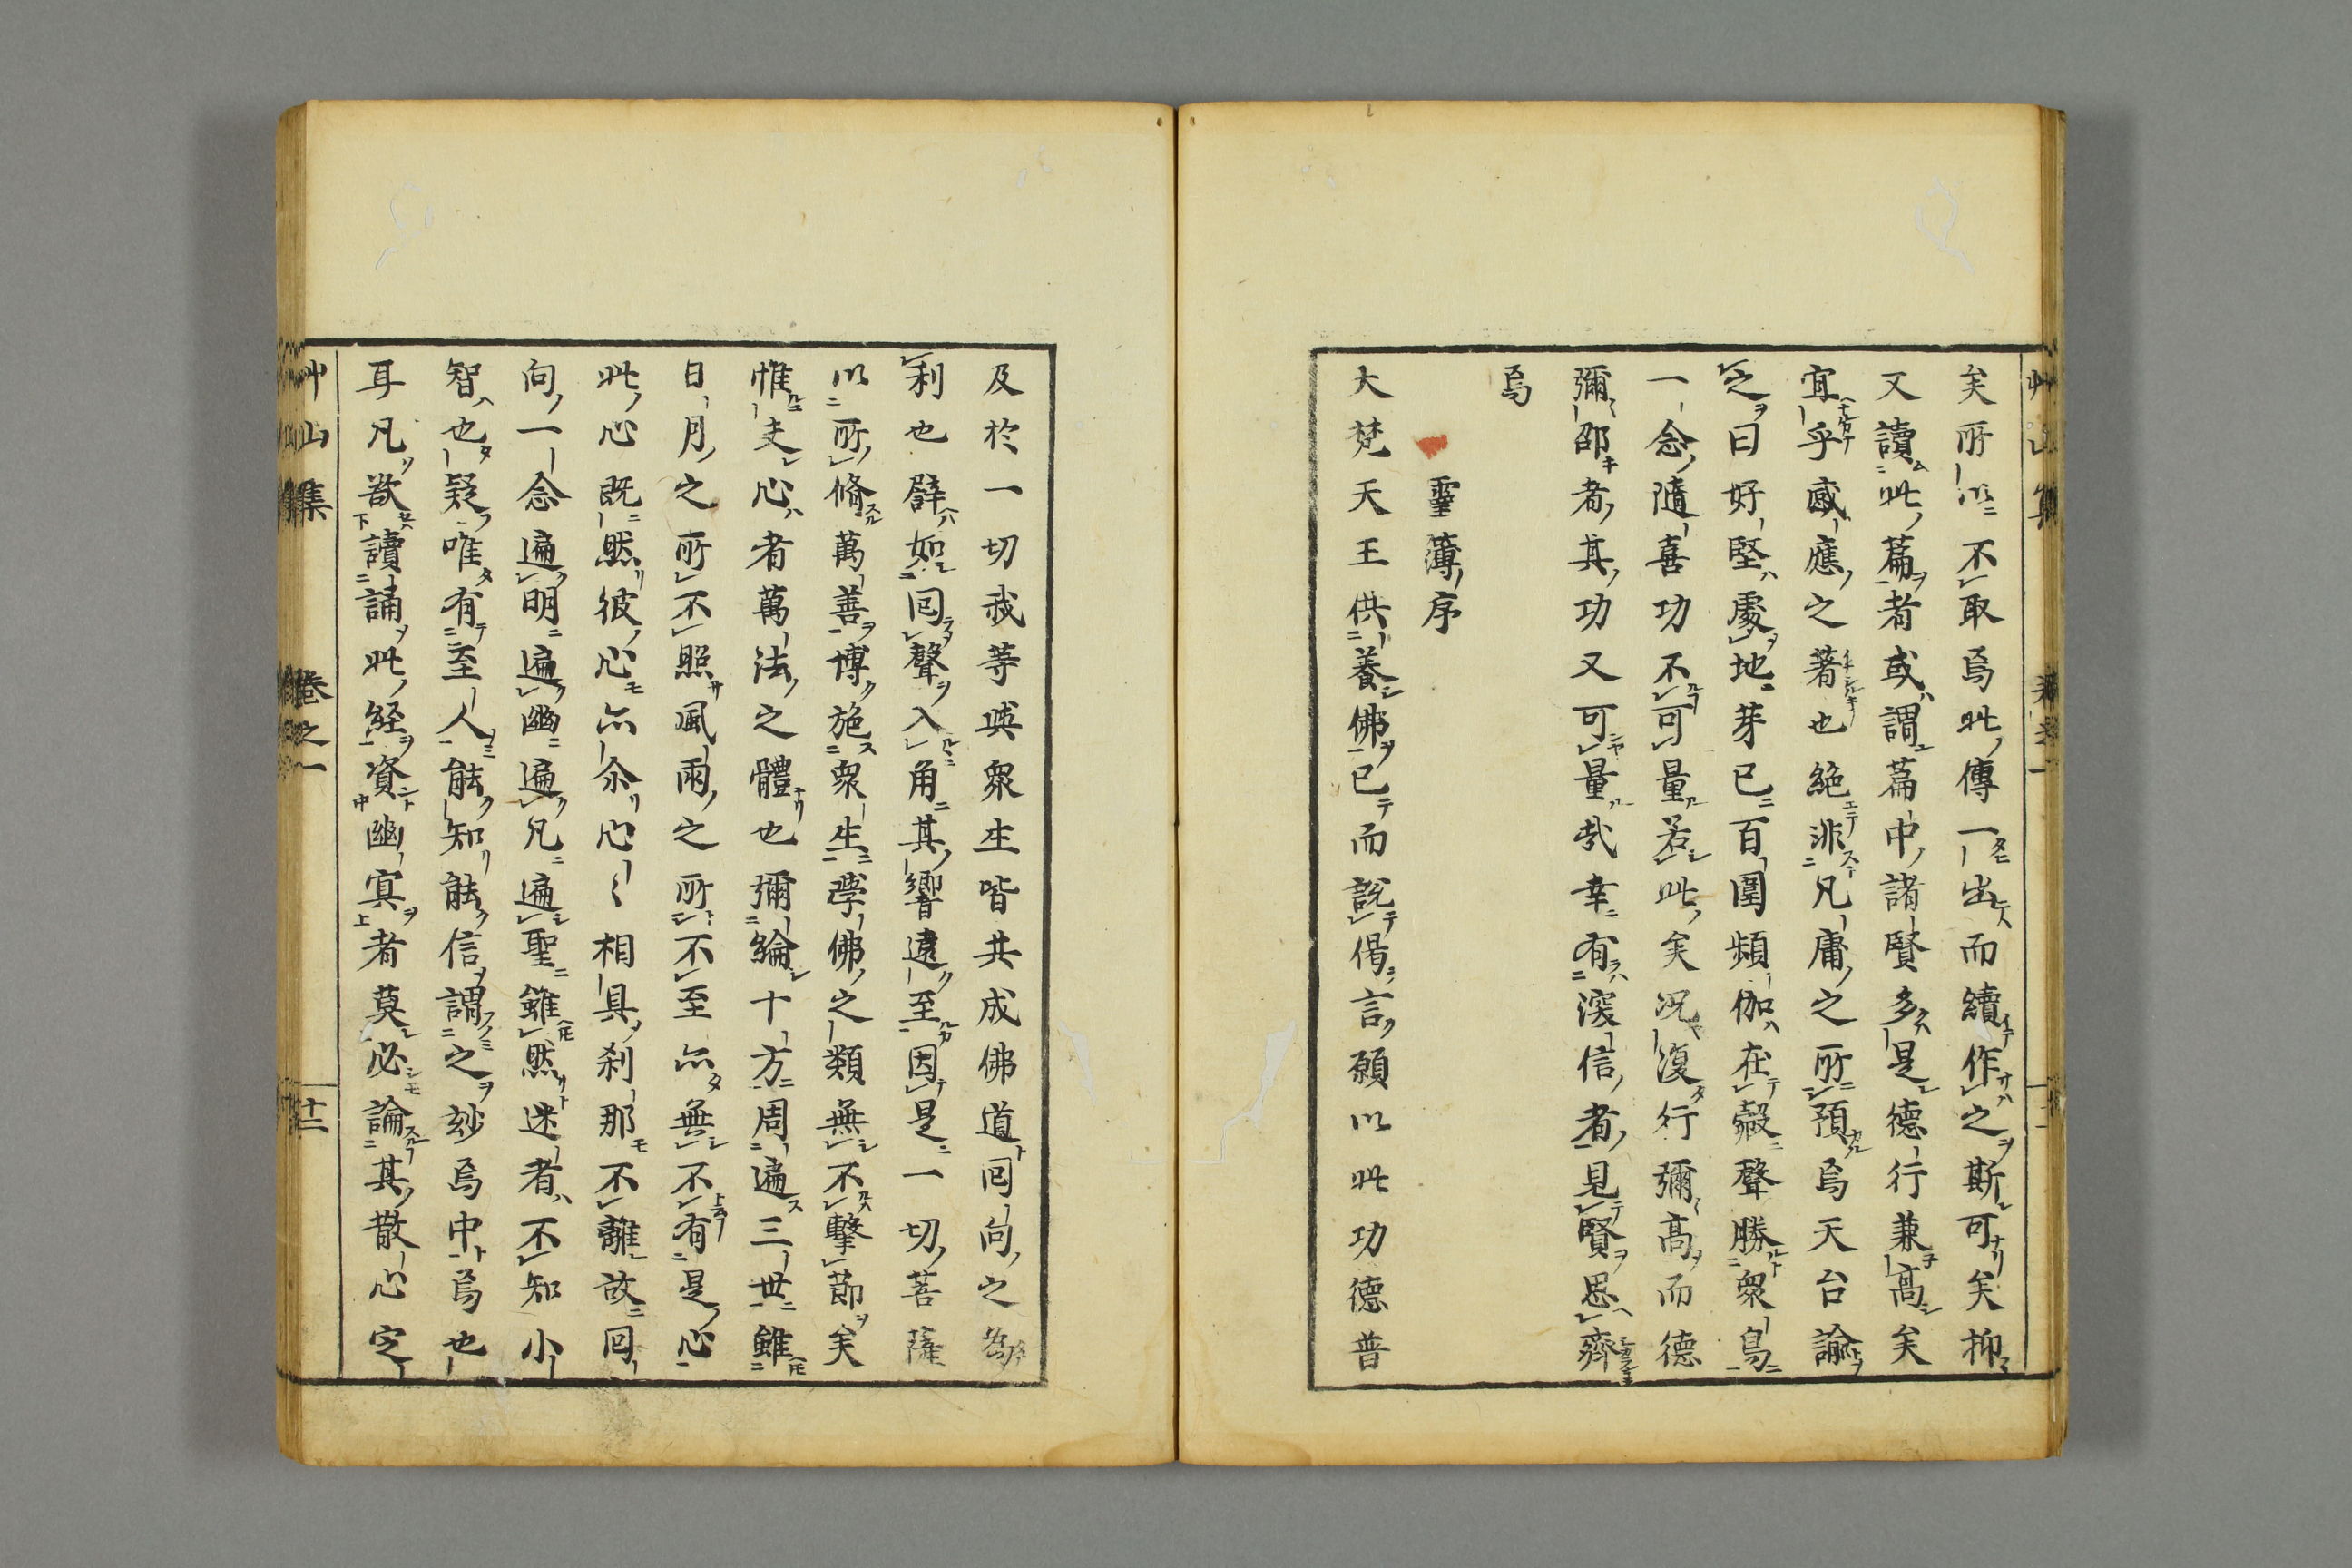 矣所以不取焉此傳一出而續作之斯可矣抑
又讀此篇者或謂篇中諸賢多是德行兼高矣
宜乎感應之著也絶非凡庸之所預焉天台諭
之曰好堅處地芽已百圍頻伽在㲉聲勝衆鳥
一念隨喜功不可量若此矣况復行彌高而德
彌邵者其功又可量哉幸有深信者見賢思齊
焉
靈簿序
大梵天王供養佛已而說偈言願以此功德普
及於一切我等與衆生皆共成佛道囘向之為
利也譬如囘聲入角其響遠至因是一切菩薩
以所脩萬善博施衆生學佛之類無不擊節矣
惟夫心者萬法之體也彌綸十方周遍三世雖
日月之所不照風雨之所不至亦無不有是心
此心既然彼心亦尒心〻相具刹那不離故囘
向一念遍明遍幽遍凡遍聖雖然迷者不知小
智也疑唯有至人能知能信謂之玅焉中焉也
耳凡欲讀誦此經資幽冥者莫必論其散心定
艸山集 卷之一 十二